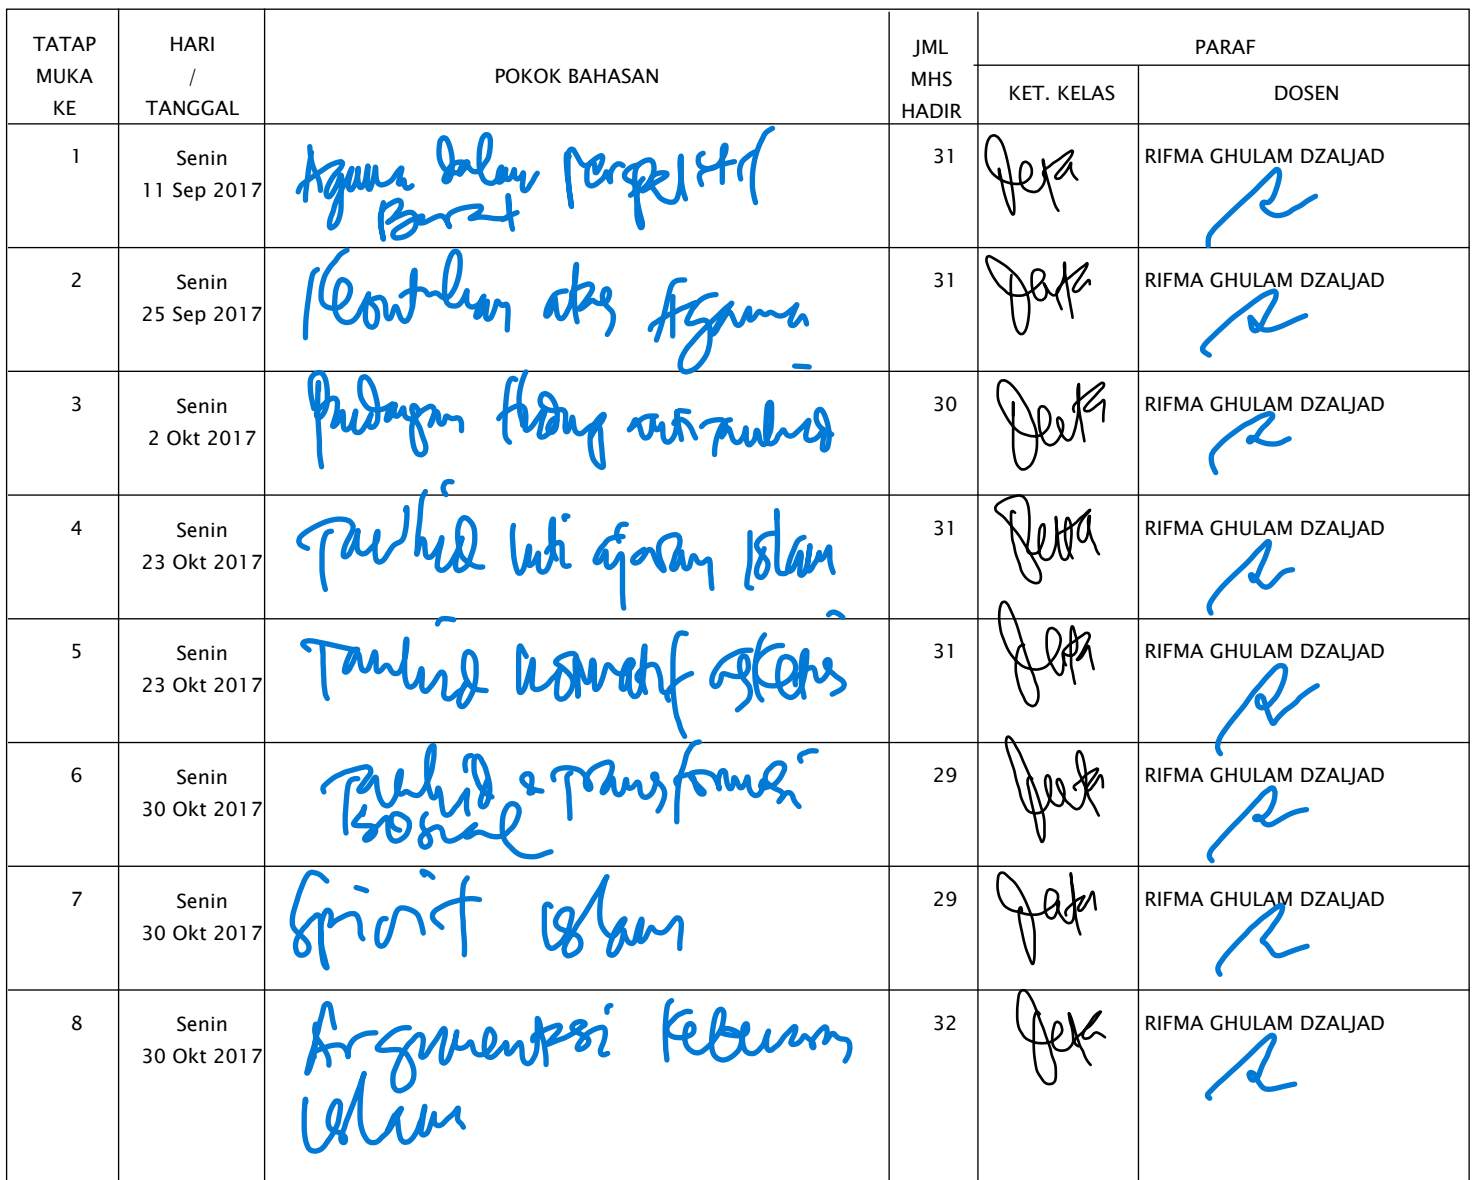 TATAP MUKA KE HARI / TANGGAL POKOK BAHASAN JML MHS HADIR PARAF
KET. KELAS DOSEN
1 Senin 11 Sep 2017 Agama dalam Perspektif Barat 31 RIFMA GHULAM DZALJAD
2 Senin 25 Sep 2017 atas Agama 31 RIFMA GHULAM DZALJAD
3 Senin 2 Okt 2017 30 RIFMA GHULAM DZALJAD
4 Senin 23 Okt 2017 Tauhid inti ajaran Islam 31 RIFMA GHULAM DZALJAD
5 Senin 23 Okt 2017 Tauhid normatif asketis 31 RIFMA GHULAM DZALJAD
6 Senin 30 Okt 2017 Tauhid & Transformasi Sosial 29 RIFMA GHULAM DZALJAD
7 Senin 30 Okt 2017 Spirit Islam 29 RIFMA GHULAM DZALJAD
8 Senin 30 Okt 2017 Islam 32 RIFMA GHULAM DZALJAD